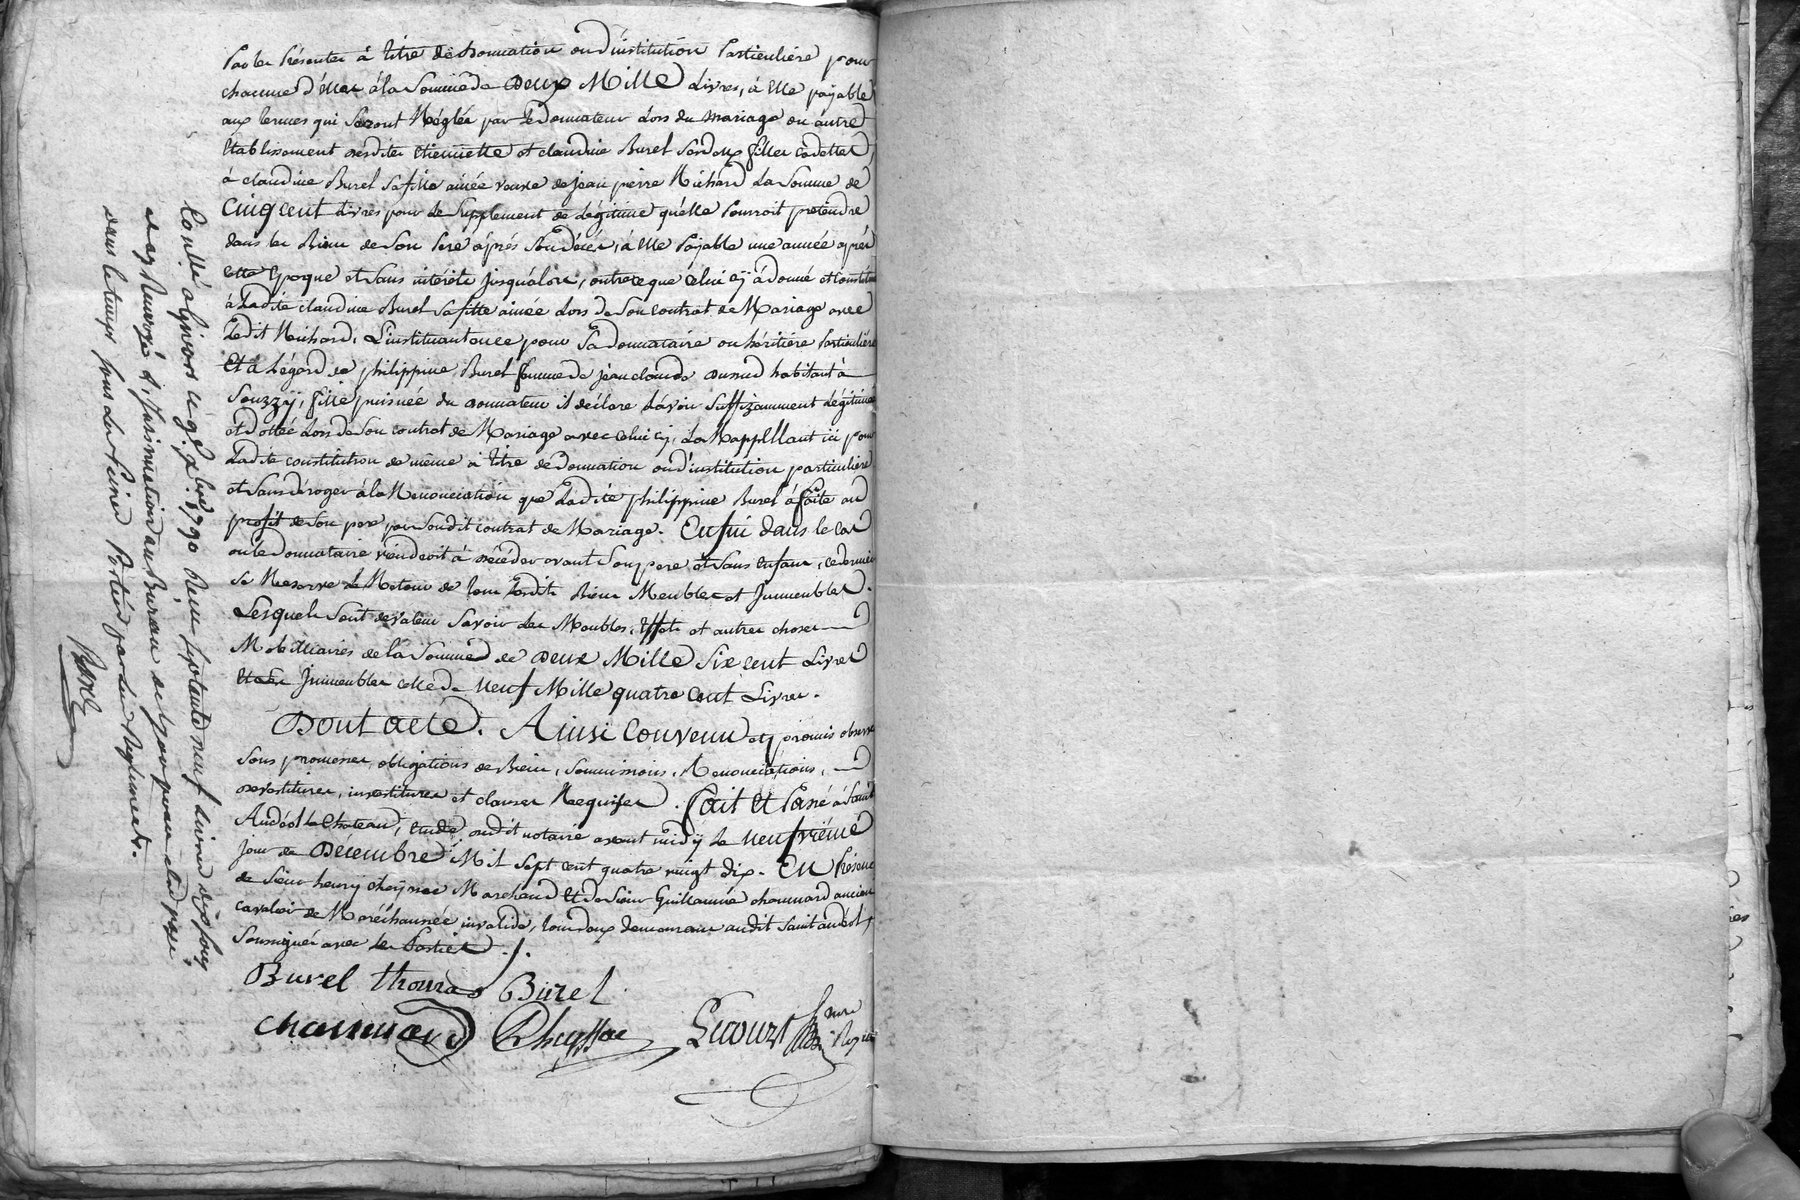 Par les présentes à titre de Donnation ou d'institution Particuliére pour
chacune d'élles à la Somme de Deux Mille Livres, à Elle payable
aux termes qui Seront Réglés par le Donnateur Lors du mariage ou autre
Etablissement desdites Etiennette et claudine Burel Ses deux filles cadettes,
à claudine Burel Sa fille ainée veuve de jean pierre Richard La Somme de
Cinq cent Livres pour Le Supplement de Légitime qu'elle Pourroit pretendre
dans les Biens de Son Pere aprés Son décés, à Elle Payable une année aprés
cette Epoque et Sans intérêts jusqu'alors, outre ce que célui cÿ à donné et Constitué
à Ladite claudine Burel Sa fille ainée Lors de Son contrat de Mariage avec
Ledit Richard, L'instituant ou ce pour Sa Donnataire ou héritiére Particuliére
Et à L'égard de philippine Burel femme de jean claude habitant à
Souzzÿ, fille puisnée du Donnateur il déclare L'avoir Suffizamment Légitimée
et dottée Lors de Son contrat de Mariage avec celui cy, La Rappellant ici pour
Ladite constitution de même à titre de Donnation ou d'institution particuliére
et Sans déroger à la Renonciation que Ladite philippine Burel à faite au
profit de Son pere par Son dit contrat de Mariage. Enfin dans le cas
ou le Donnataire viendroit à décéder avant Son pere et Sans Enfans, ce dernier
Se Reserve Le Retour de tous Lesdits Biens Meubles et Immeubles.
Lesquels Sont de valeur Savoir Les Meubles, Effets et autres choses
Mobiliaires de la Somme de Deux Mille Six cent Livres
Et les Immeubles celle de Neuf Mille quatre cent Livres.
Dont acte. Ainsi Convenu et promis observer
Sous promesses, obligations de Biens, Soumissions, Renonciations,
devestitures, investitures et clauses Requises. Fait et Passé à Saint
Andéol le Chateau, Etude dudit notaire avant midÿ Le neufviéme
jour de Décembre Mil Sept cent quatre vingt dix. En Présence
de Sieur henry cheyssac Marchand Et de Sieur Guillaume chaumard ancien
cavalier de Maréchaussée invalide, tous deux demeurans audit Saint andéol,
Soussignés avec les Parties ./.
Burel thomas Burel
chaumard Cheyssac Lecourt nre
Controllé à Givors ce 9. Xbre 1790 Reçu Septante neuf Livres dix Sous
et a Renvoyé L'Insinuation au Bureau de pour
dans le temps Sous Les Peines Portées par Les Reglements.